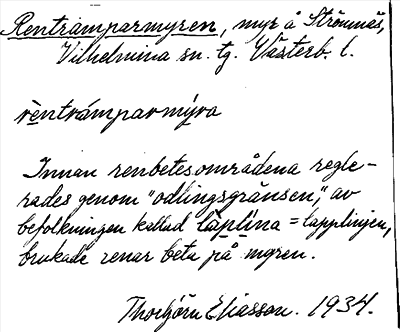 Rentramparmyren, myr å Strömnäs,
Vilhelmina sn. tg. Västerb. l.
rèntrámparmýra
Innan renbetesområdena regle-
rades genom "odlingsgränsen", av
befolkningen kallad làplína = lapplinjen,
brukade renar beta på myren.
Thorbjörn Eliasson. 1934.